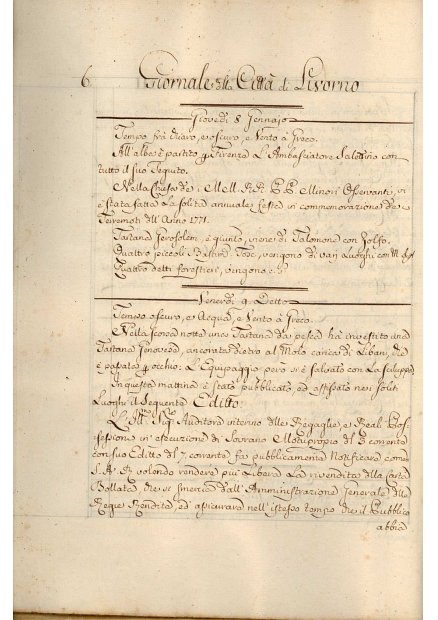 6. Giornale della Città di Livorno
Giovedì 8 Gennajo
Tempo frà chiaro, e oscuro, e Vento à Greco.
All'alba è partito p Firenze L'Ambasciatore con
tutto il suo Seguito.
Nella Chiesa de i M. RR. PP. Minori Osservanti, vi
è stata fatta La solita annuale Festa in commemorazione de
Terremoti dell'Anno 1771.
Tartana Gerosolem. è giunta, viene di Talomone con Zolfo.
Quattro piccoli Bastim. Tosc. vengono di varj Luoghi con
Quattro detti forestieri, vengono
Venerdì 9. Detto
Tempo oscuro, e Acqua, e Vento à Greco.
Nella scorsa notte una Tartana da pesca hà investito una
Tartana Genovese, ancorata dietro al Molo carica di
è passata p occhio: L'Equipaggio però si è salvato con La
In questa mattina è stato pubblicato, ed affissato nei soliti
Luoghi il Seguente Editto:
L'Ill. Sig. Auditore intorno alle Regaglie, e Reali Pos-
sessioni in esecuzione di Sovrano Motuproprio del corrente
con suo Editto del 7. corrente fà pubblicamente Notificare come
S. A. R. volendo rendere più Libera La rivendita della Carta
Bollata, che si smercia dall'Amministrazione Generale delle
Regie Rendite, ed assicurare nell'istesso tempo che il Pubblico
abbia